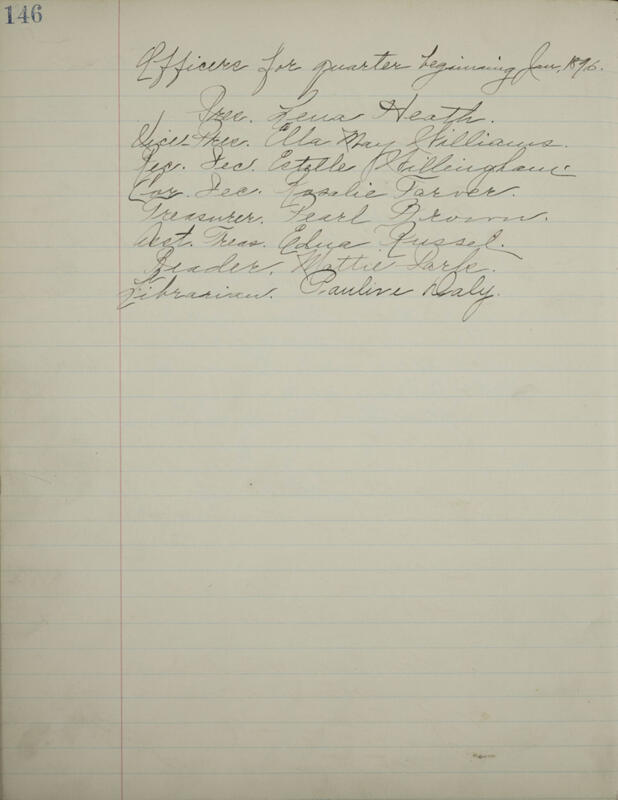 146
Officers for quarter beginning Jan, 1896.
Pres. Lena Heath.
Vice-Pres. Ella May Williams.
Rec. Sec. Estelle Dillingham.
Cor. Sec. Rosalie Tarver.
Treasurer. Pearl Brown.
Asst. Treas. Edna Russel.
Reader. Mattie Park.
Librarian. Pauline Daly.